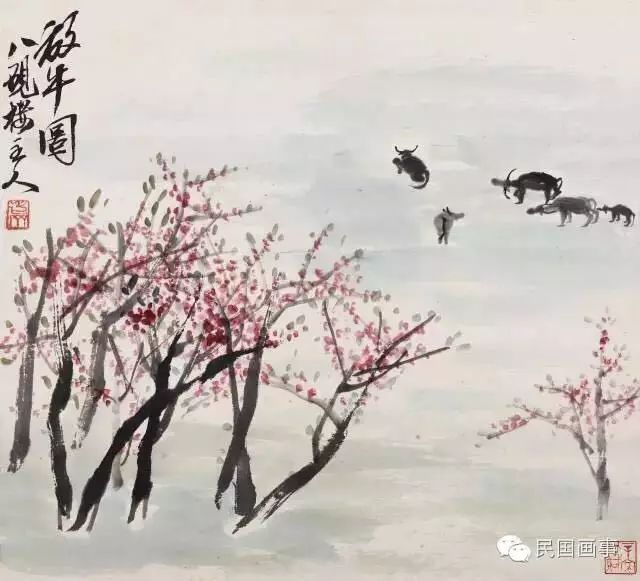 放牛圖
八硯樓主人
民国画事